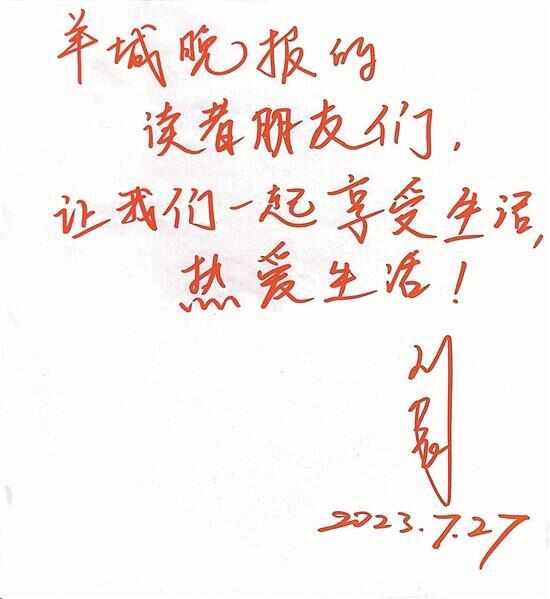 羊城晚报的
读者朋友们，
让我们一起享受生活，
热爱生活！
2023.7.27